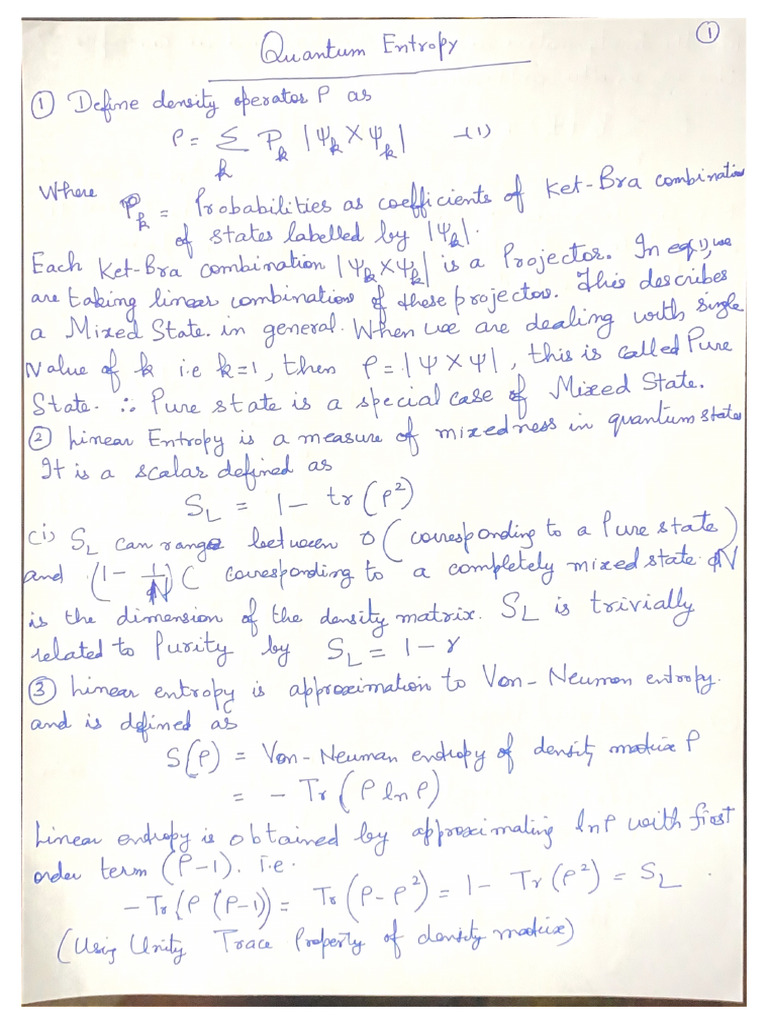 ①
Quantum Entropy
① Define density operator ρ as
ρ = Σ_k P_k |Ψ_k X Ψ_k| —(1)
Where P_k = Probabilities as coefficients of Ket-Bra combination
of states labelled by |Ψ_k|.
Each Ket-Bra combination |Ψ_k X Ψ_k| is a Projector. In eq(1), we
are taking linear combination of these projector. This describes
a Mixed State. in general. When we are dealing with single
Value of k i.e k=1, then ρ = |Ψ X Ψ|, this is called Pure
State. ∴ Pure state is a special case of Mixed State.
② Linear Entropy is a measure of mixedness in quantum state
It is a scalar defined as
S_L = 1 - tr(ρ²)
(i) S_L can range between 0 (corresponding to a Pure state)
and (1 - 1/N) ( corresponding to a completely mixed state. N
is the dimension of the density matrix. S_L is trivially
related to Purity by S_L = 1 - γ
③ Linear entropy is approximation to Von-Neuman entropy.
and is defined as
S(ρ) = Von-Neuman entropy of density matrix ρ
= - Tr(ρ ln ρ)
Linear entropy is obtained by approximating lnρ with first
order term (ρ-1). i.e.
- Tr(ρ (ρ-1)) = Tr(ρ-ρ²) = 1 - Tr(ρ²) = S_L.
(Using Unity Trace Property of density matrix)